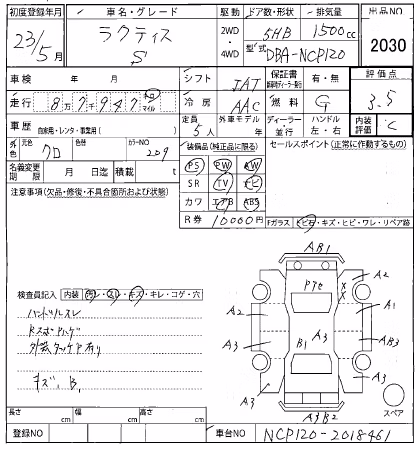 初度登録年月 車名・グレード 駆動 ドア数・形状 排気量 出品NO
23/5月 ラクティス S 2WD・4WD 5HB 1500cc 2030
型式 DBA-NCP120
車検 年 月 シフト IAT 保証書 有・無 評価点
走行 8万7947 キロ マイル 冷房 AAC 燃料 G 3.5
車歴 自家用・レンタ・事業用( ) 定員 5人 外車モデル 年 ディーラー・並行 ハンドル 左・右 内装評価 C
外色 元色 クロ 色替 カラーNO 209
装備品(純正品に限る) セールスポイント(正常に作動するもの)
名義変更期限 月 日迄 積載 t
PS PW AW
SR TV ナビ
カワ エアB ABS
R券 10000円
注意事項(欠品・修復・不具合箇所および状態)
Fガラス トビ石・キズ・ヒビ・ワレ・リペア跡
検査員記入 内装 ヨレ・スレ・キズ・キレ・コゲ・穴
ハンドルスレ
外装タッチア有り
キズ、B,
AB1
A2
X
X
A2
A1
A3
B1
A3
AB3
A3
A3
A3
A3B2
スペア
長さ cm 幅 cm 高さ cm
登録NO 車台NO NCP120-2018461